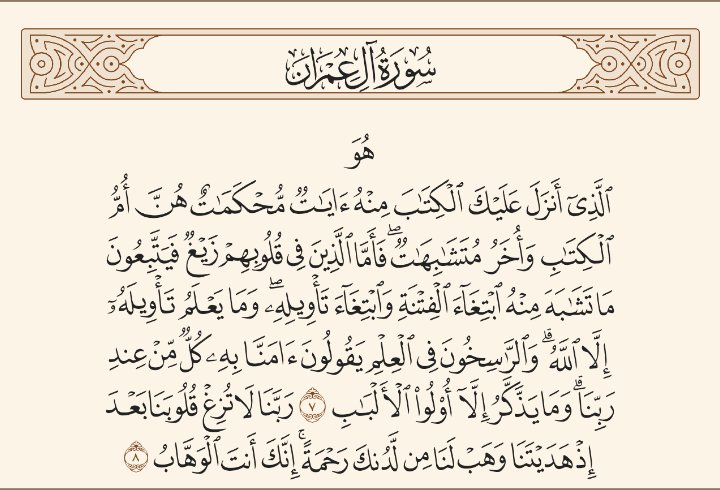 سُورَةُ آلِ عِمْرَانَ
هُوَ
ٱلَّذِىٓ أَنزَلَ عَلَيْكَ ٱلْكِتَـٰبَ مِنْهُ ءَايَـٰتٌ مُّحْكَمَـٰتٌ هُنَّ أُمُّ
ٱلْكِتَـٰبِ وَأُخَرُ مُتَشَـٰبِهَـٰتٌ ۖ فَأَمَّا ٱلَّذِينَ فِى قُلُوبِهِمْ زَيْغٌ فَيَتَّبِعُونَ
مَا تَشَـٰبَهَ مِنْهُ ٱبْتِغَآءَ ٱلْفِتْنَةِ وَٱبْتِغَآءَ تَأْوِيلِهِۦ ۖ وَمَا يَعْلَمُ تَأْوِيلَهُۥٓ
إِلَّا ٱللَّهُ ۗ وَٱلرَّٰسِخُونَ فِى ٱلْعِلْمِ يَقُولُونَ ءَامَنَّا بِهِۦ كُلٌّ مِّنْ عِندِ
رَبِّنَا ۗ وَمَا يَذَّكَّرُ إِلَّآ أُو۟لُوا۟ ٱلْأَلْبَـٰبِ ٧ رَبَّنَا لَا تُزِغْ قُلُوبَنَا بَعْدَ
إِذْ هَدَيْتَنَا وَهَبْ لَنَا مِن لَّدُنكَ رَحْمَةً ۚ إِنَّكَ أَنتَ ٱلْوَهَّابُ ٨